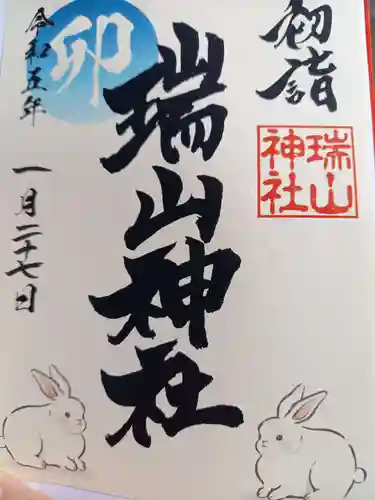 初詣
瑞山神社
瑞山神社
卯
令和五年
一月二十七日